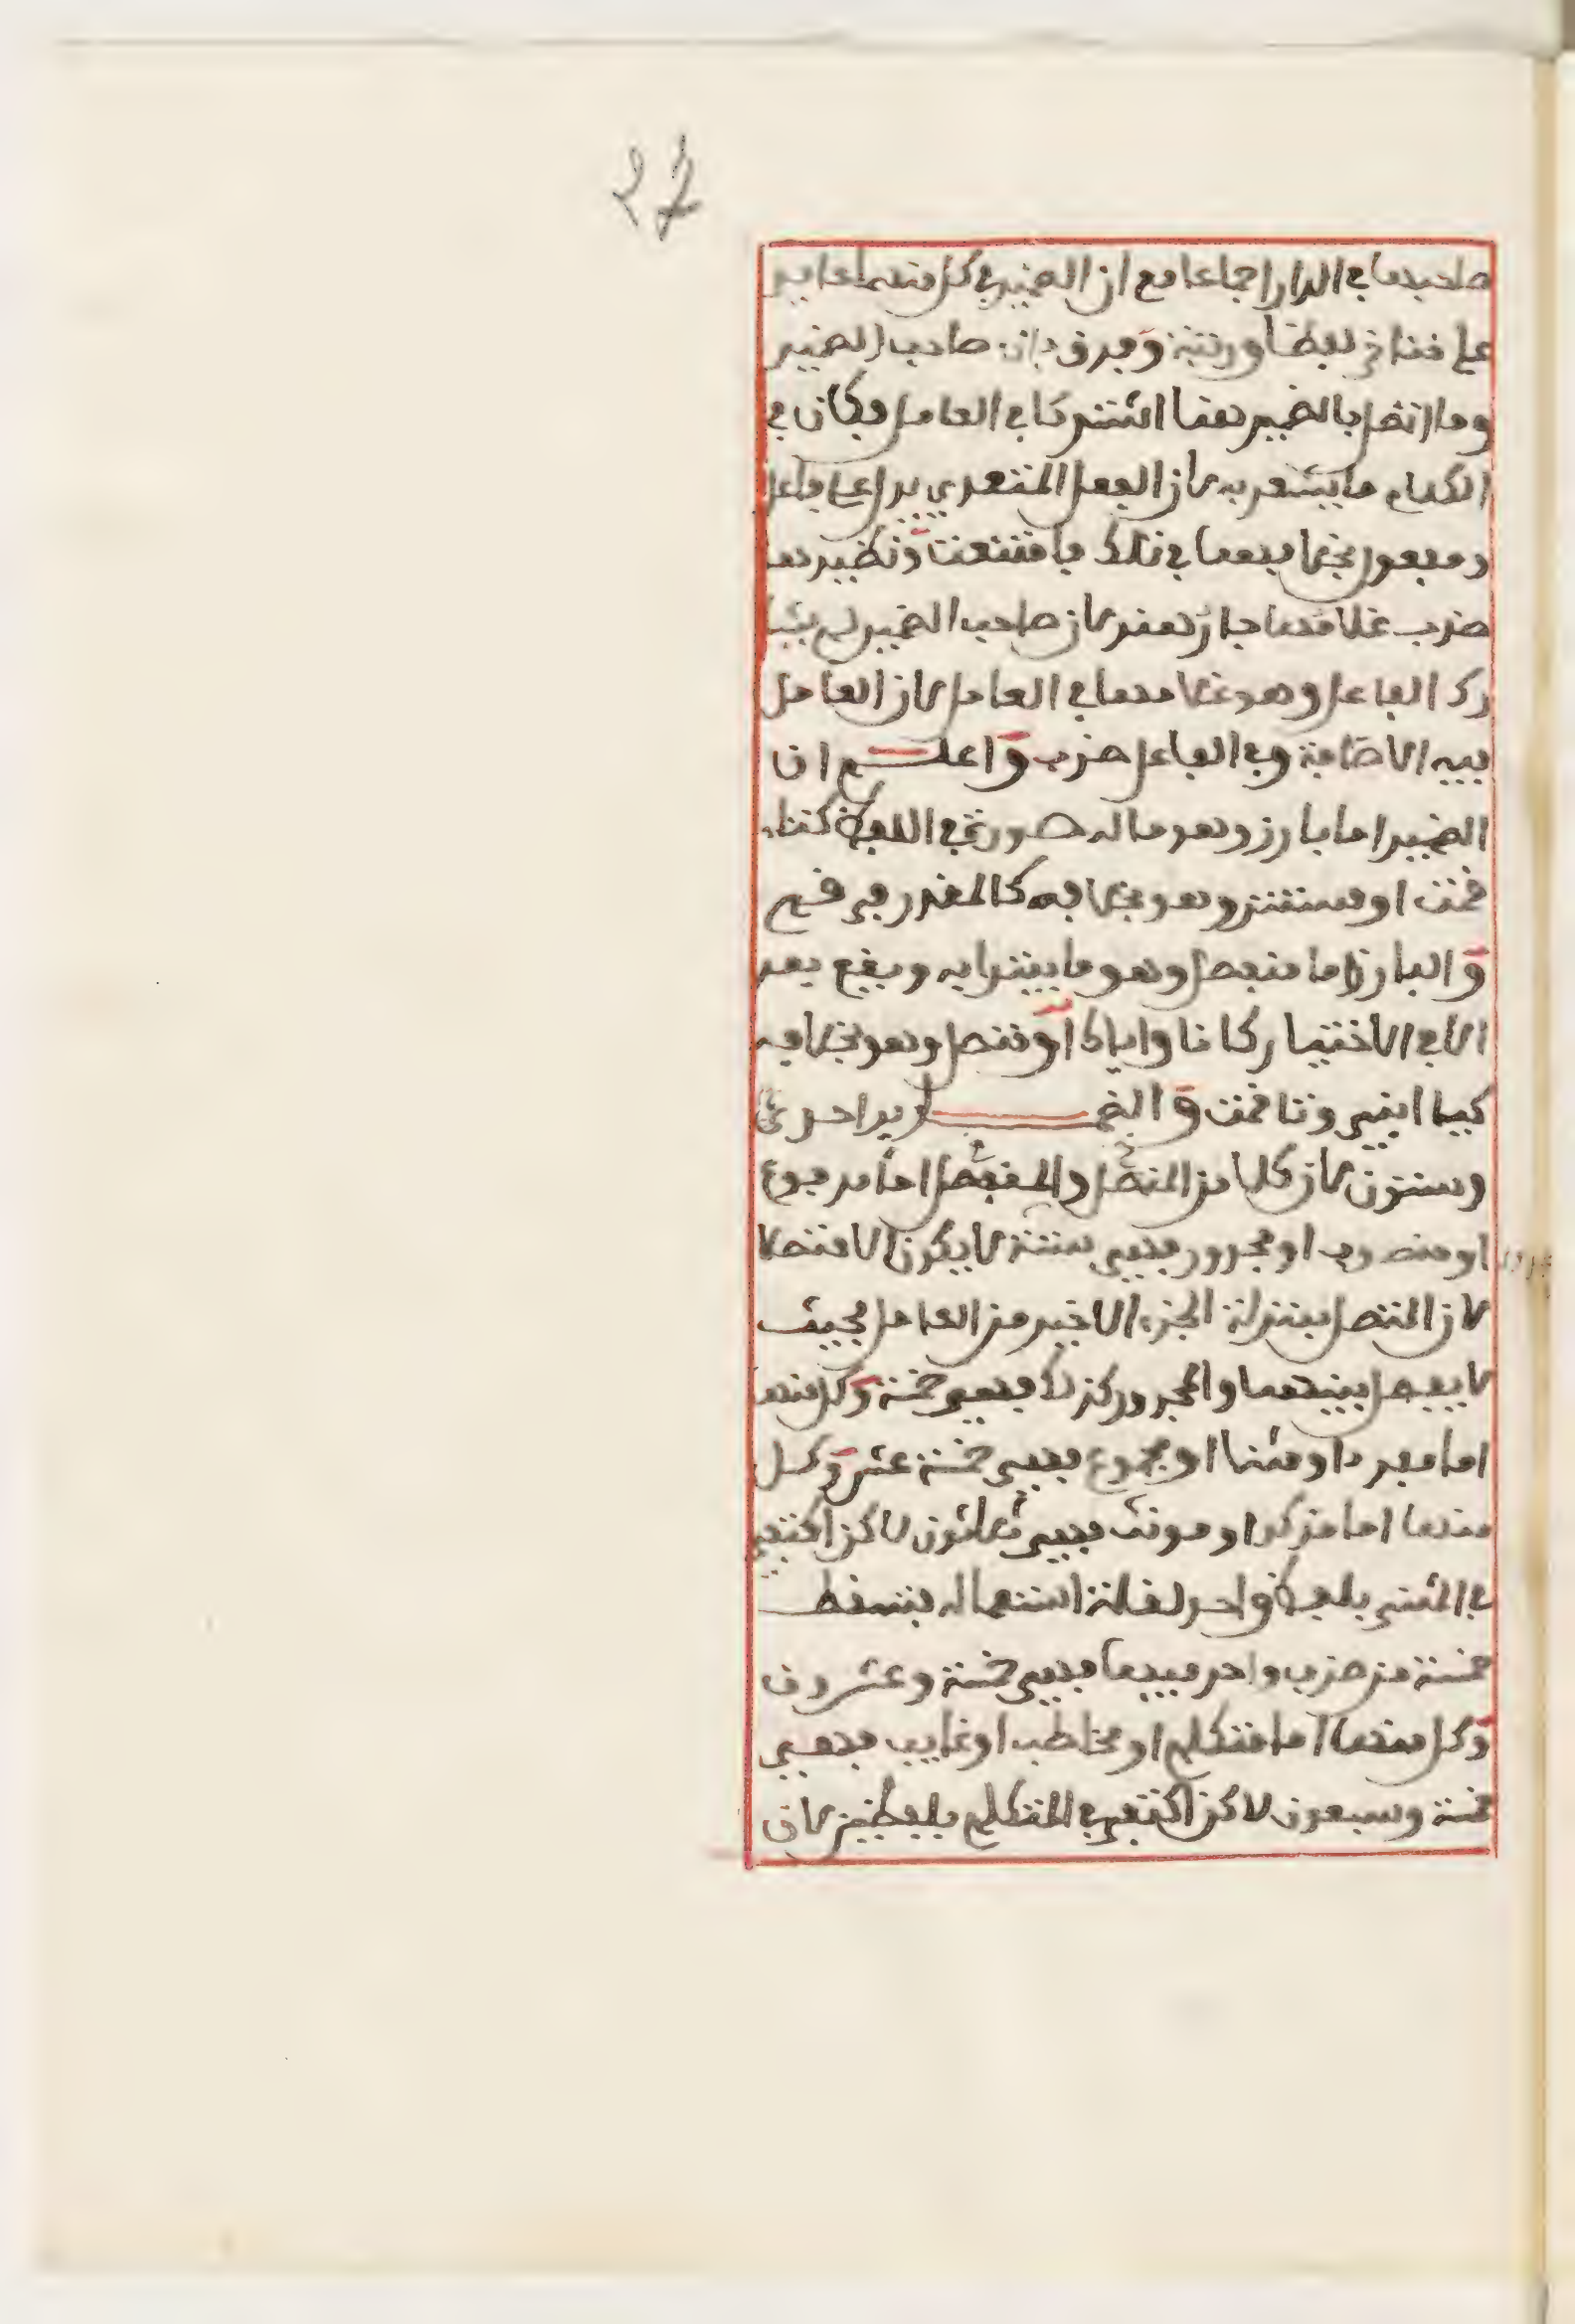 صاحبها في الدار اجماعا مع ان الضمير في كل منهما عايد
على متاخر لفظا ورتبة وفرق بان صاحب الضمير
وما اتصل بالضمير هنا اشتركا في العامل فكان في
الكلام ما يشعر به لان الفعل المتعدي يدل على فاعل
ومفعول بخلافهما في تلك فامتنعت ونظير هذا
ضرب غلامها جار هند لان صاحب الضمير لم يشا
رك الفاعل وهو غلامها في العامل لان العامل
فيه الاضافة وفي الفاعل ضرب واعلم ان
الضمير اما بارز وهو ما له صورة في اللفظ كتاء
قمت او مستتر وهو بخلافه كالمقدر في قم
والبارز اما منفصل وهو ما يبتدا به ويقع بعد
الا في الاختيار كانا واياك او متصل وهو بخلافه
كيا ابني وتا قمت والضماير احدى
وستون لان كلا من المتصل والمنفصل اما مرفوع
او منصوب او مجرور فهي ستة لا يكون الا متصلا
لان المتصل بمنزلة الجزء الاخير من العامل بحيث
لا يفصل بينهما والمجرور كذلك فهي خمسة وكل منها
اما مفرد او مثنا او مجموع فهي خمسة عشر وكل
منها اما مذكر او مونث فهي ثلاثون لاكن اكتفي
في المثنى بلفظ واحد لقلة استعماله فتسقط
خمسة من ضرب واحد فيها فهي خمسة وعشرون
وكل منها اما متكلم او مخاطب او غايب فهي
خمسة وسبعون لاكن اكتفي في المتكلم بلفظين لان